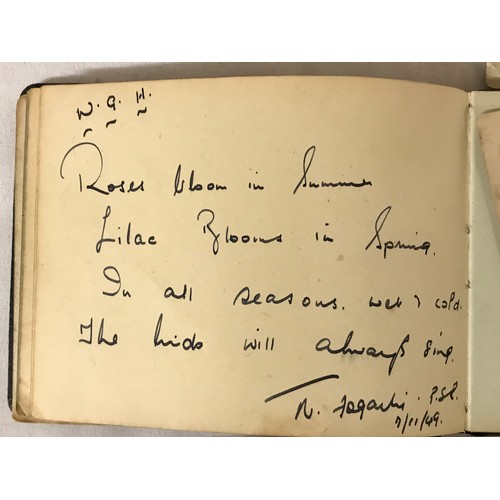 Roses bloom in Summer
Lilac Blooms in Spring.
In all seasons. wet & cold.
The kids will always sing.
7/11/49.